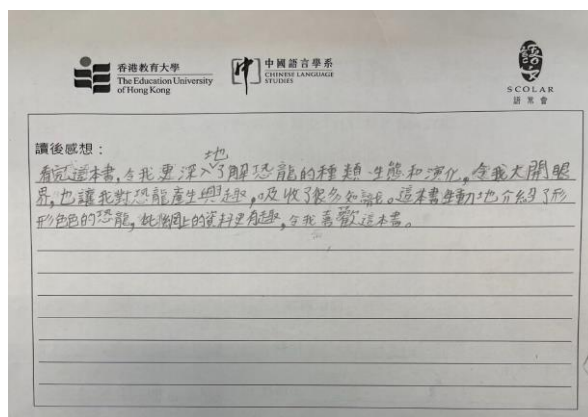 香港教育大學
The Education University
of Hong Kong
中國語言學系
CHINESE LANGUAGE
STUDIES
語文
SCOLAR
語常會
讀後感想：
看完這本書，令我更深入地了解恐龍的種類、生態和演化，令我大開眼
界，也讓我對恐龍產生興趣，吸收了很多知識。這本書生動地介紹了形
形色色的恐龍，比網上的資料更有趣，令我喜歡這本書。